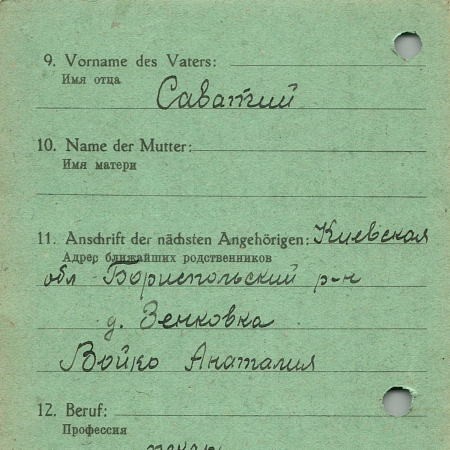 9. Vorname des Vaters:
Имя отца
Саватий
10. Name der Mutter:
Имя матери
11. Anschrift der nächsten Angehörigen: Киевская
Адрес ближайших родственников
обл Бориспольский р-н
д. Зенковка
Бойко Анаталия
12. Beruf:
Профессия
пекарь